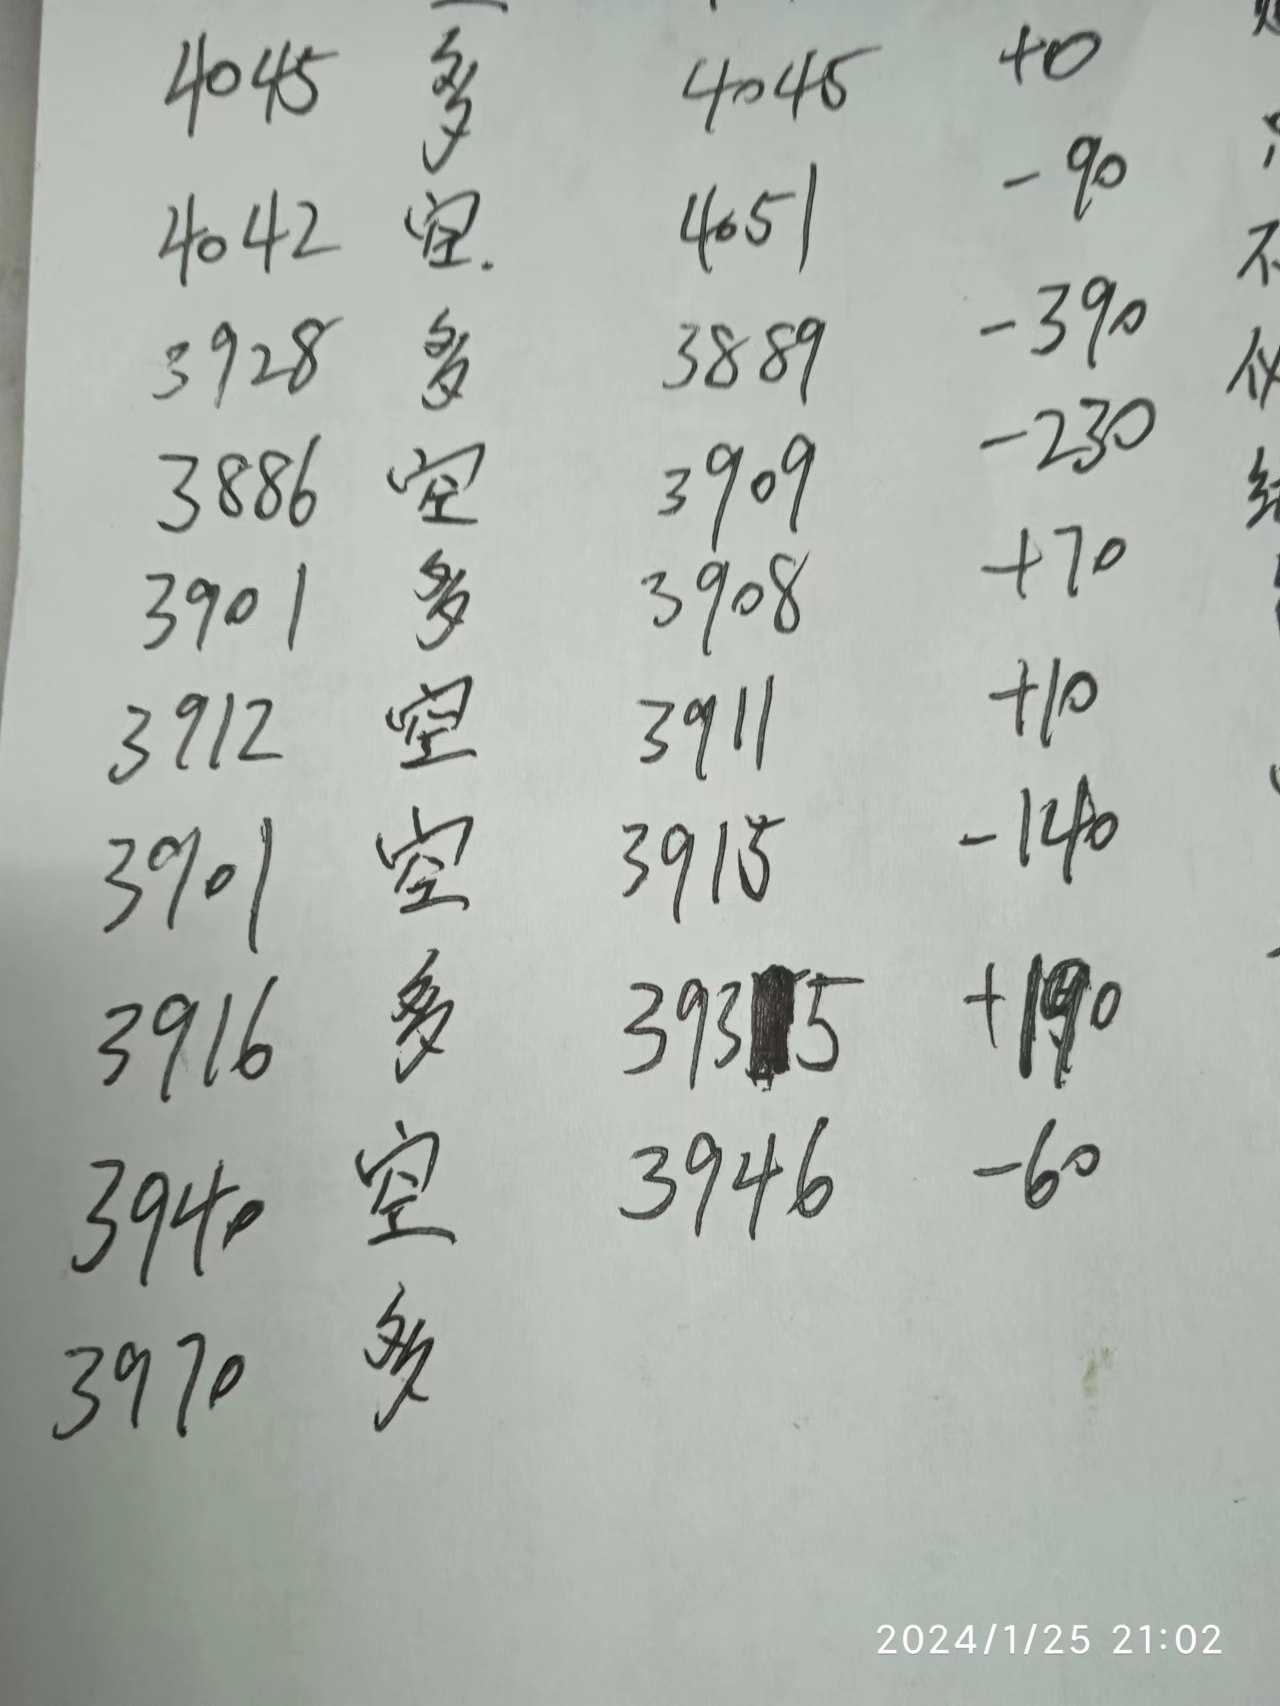 4045 多 4045 +0
4042 空. 4051 -90
3928 多 3889 -390
3886 空 3909 -230
3901 多 3908 +70
3912 空 3911 +10
3901 空 3915 -140
3916 多 3935 +190
3940 空 3946 -60
3970 多
不
仪
2024/1/25 21:02